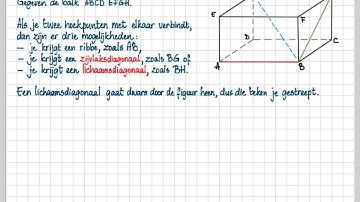 Gegeven de balk ABCD EFGH.
Als je twee hoekpunten met elkaar verbindt,
dan zijn er drie mogelijkheden:
- je krijgt een ribbe, zoals AB,
- je krijgt een zijvlaksdiagonaal, zoals BG of
- je krijgt een lichaamsdiagonaal, zoals BH.
Een lichaamsdiagonaal gaat dwars door de figuur heen, dus die teken je gestreept.
E
F
D
C
A
B